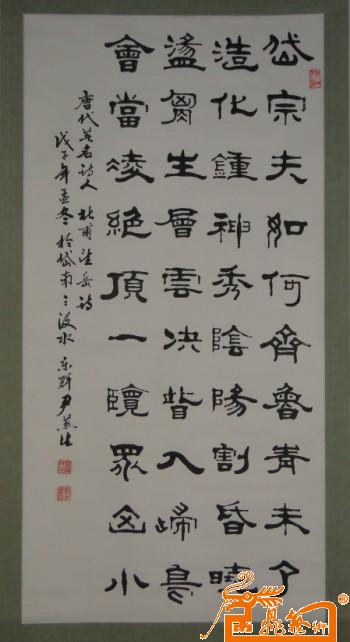 岱宗夫如何齊魯青未了
造化鍾神秀陰陽割昏曉
盪胷生層雲决眥入歸鳥
會當凌絕頂一覽眾山小
唐代英名詩人杜甫望岳詩
戊子年孟冬於岱南之汶水 尹